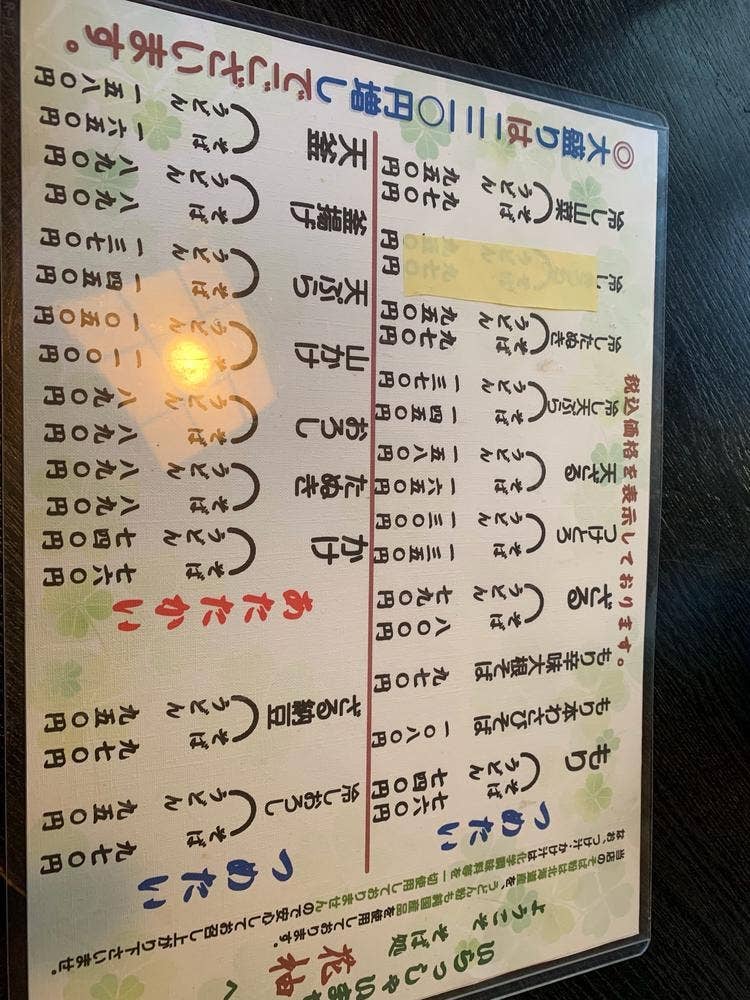 いらっしゃいま
ようこそ そば処 花柚 へ
当店のそば粉は北海道産を、うどん粉も純国産品を使用しております。
なお、つけ汁・かけ汁は化学調味料等を一切使用しておりませんので安心してお召し上がり下さいませ。
税込価格を表示しております。
つめたい
もり
そば 七六〇円
うどん 七四〇円
もり本わさびそば 一〇八〇円
もり辛味大根そば 九七〇円
ざる
そば 八一〇円
うどん 七九〇円
つけとろ
そば 一三五〇円
うどん 一三〇〇円
天ざる
そば 一六五〇円
うどん 一五八〇円
冷し天ぷら
そば 一四五〇円
うどん 一三七〇円
冷したぬき
そば 九七〇円
うどん 九五〇円
冷し
円
円
冷し山菜
そば 九七〇円
うどん 九五〇円
つめたい
冷しおろし
そば 九七〇円
うどん 九五〇円
ざる納豆
そば 九七〇円
うどん 九五〇円
あたたかい
かけ
そば 七六〇円
うどん 七四〇円
たぬき
そば 八九〇円
うどん 八九〇円
おろし
そば 八九〇円
うどん 八九〇円
山かけ
そば 一一〇〇円
うどん 一〇五〇円
天ぷら
そば 一四五〇円
うどん 一三七〇円
釜揚げ
そば 八九〇円
うどん 八九〇円
天釜
そば 一六五〇円
うどん 一五八〇円
◎大盛りは二二〇円増しでございます。